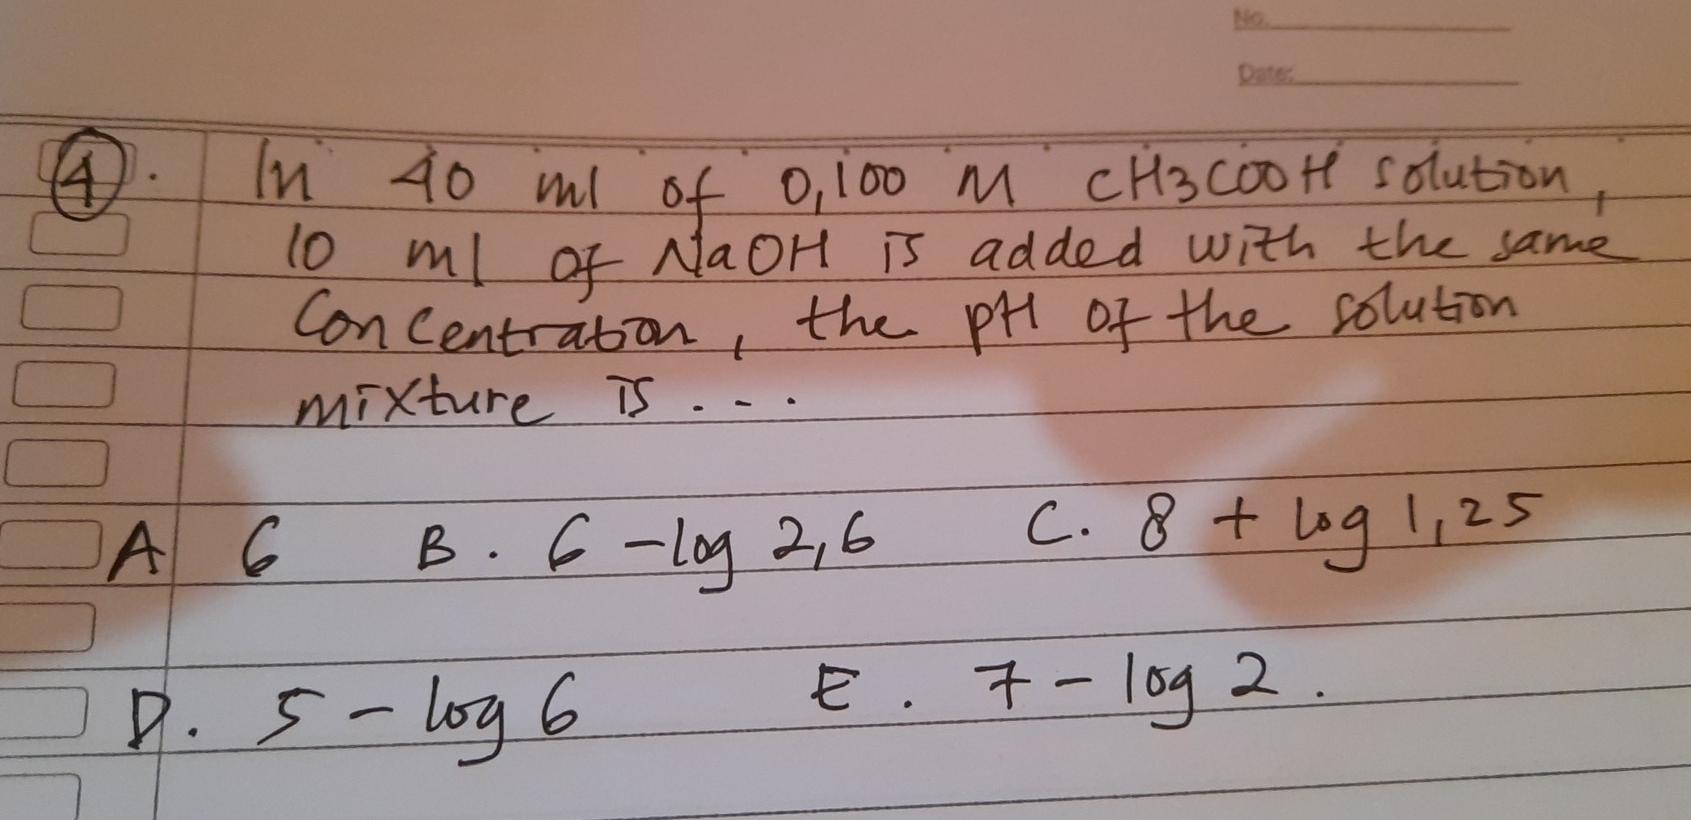 No.
Date:
4. In 40 ml of 0,100 M CH3COOH solution,
10 ml of NaOH is added with the same
concentration, the pH of the solution
mixture is ...
A 6 B. 6 -log 2,6 C. 8 + log 1,25
D. 5 - log 6 E. 7 - log 2.